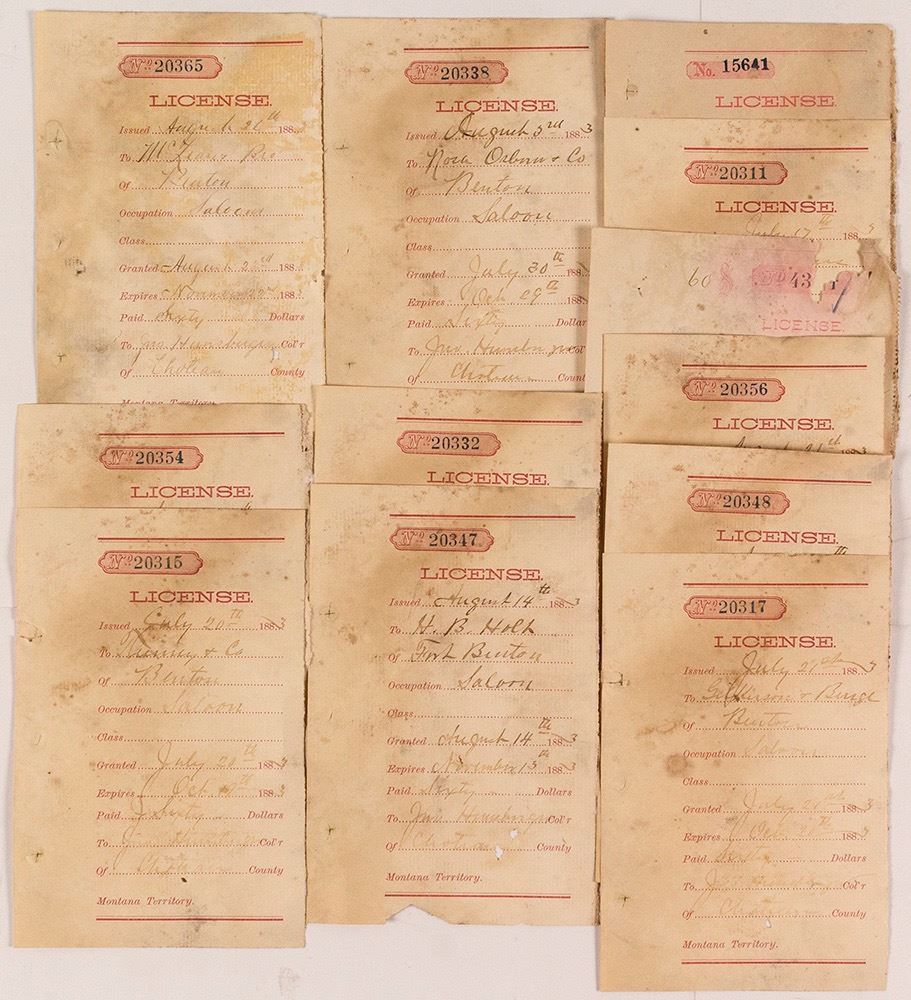 No 20365
LICENSE.
Issued August 26th 188
To Bro
Of Benton
Occupation Saloon
Class
Granted August 188
Expires November 188
Paid Sixty Dollars
To Jno Col'r
Of Choteau County
Montana Territory
No 20338
LICENSE.
Issued August 3rd 1883
To Rosa Osborn & Co
Of Benton
Occupation Saloon
Class
Granted July 30th 188
Expires Oct 29th 188
Paid Sixty Dollar
To Jno Col'
Of Choteau Count
No. 15641
LICENSE.
No 20311
LICENSE.
July 17th 188
60 $ 43
LICENSE.
No 20356
LICENSE.
No 20348
LICENSE.
th
No 20354
LICENSE.
No 20315
LICENSE.
Issued July 20th 1883
To & Co
Of Benton
Occupation Saloon
Class
Granted July 20th 188
Expires Oct 1883
Paid Sixty Dollars
To Col'r
Of County
Montana Territory.
No 20332
LICENSE.
No 20347
LICENSE.
Issued August 14th 1883
To H. B. Holt
Of Fort Benton
Occupation Saloon
Class
Granted August 14th 1883
Expires November 13th 1883
Paid Sixty Dollars
To Jno Col'r
Of County
Montana Territory.
No 20317
LICENSE.
Issued July 1883
To &
Of Benton
Occupation Saloon
Class
Granted July 1883
Expires Oct 188
Paid Sixty Dollars
To Col'r
Of County
Montana Territory.